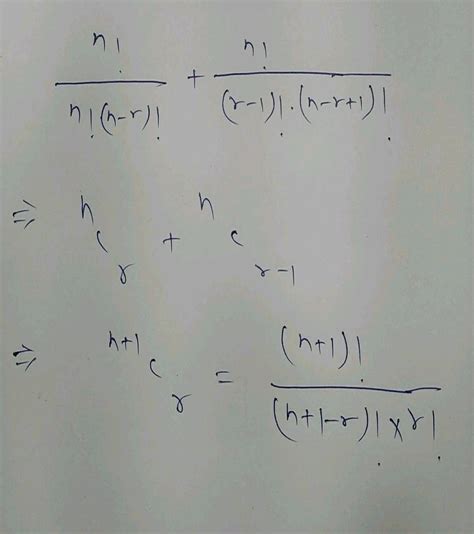 n! / n!(n-r)! + n! / (r-1)!.(n-r+1)!
⇒ ⁿC_r + ⁿC_{r-1}
⇒ ⁿ⁺¹C_r = (n+1)! / (n+1-r)! × r!